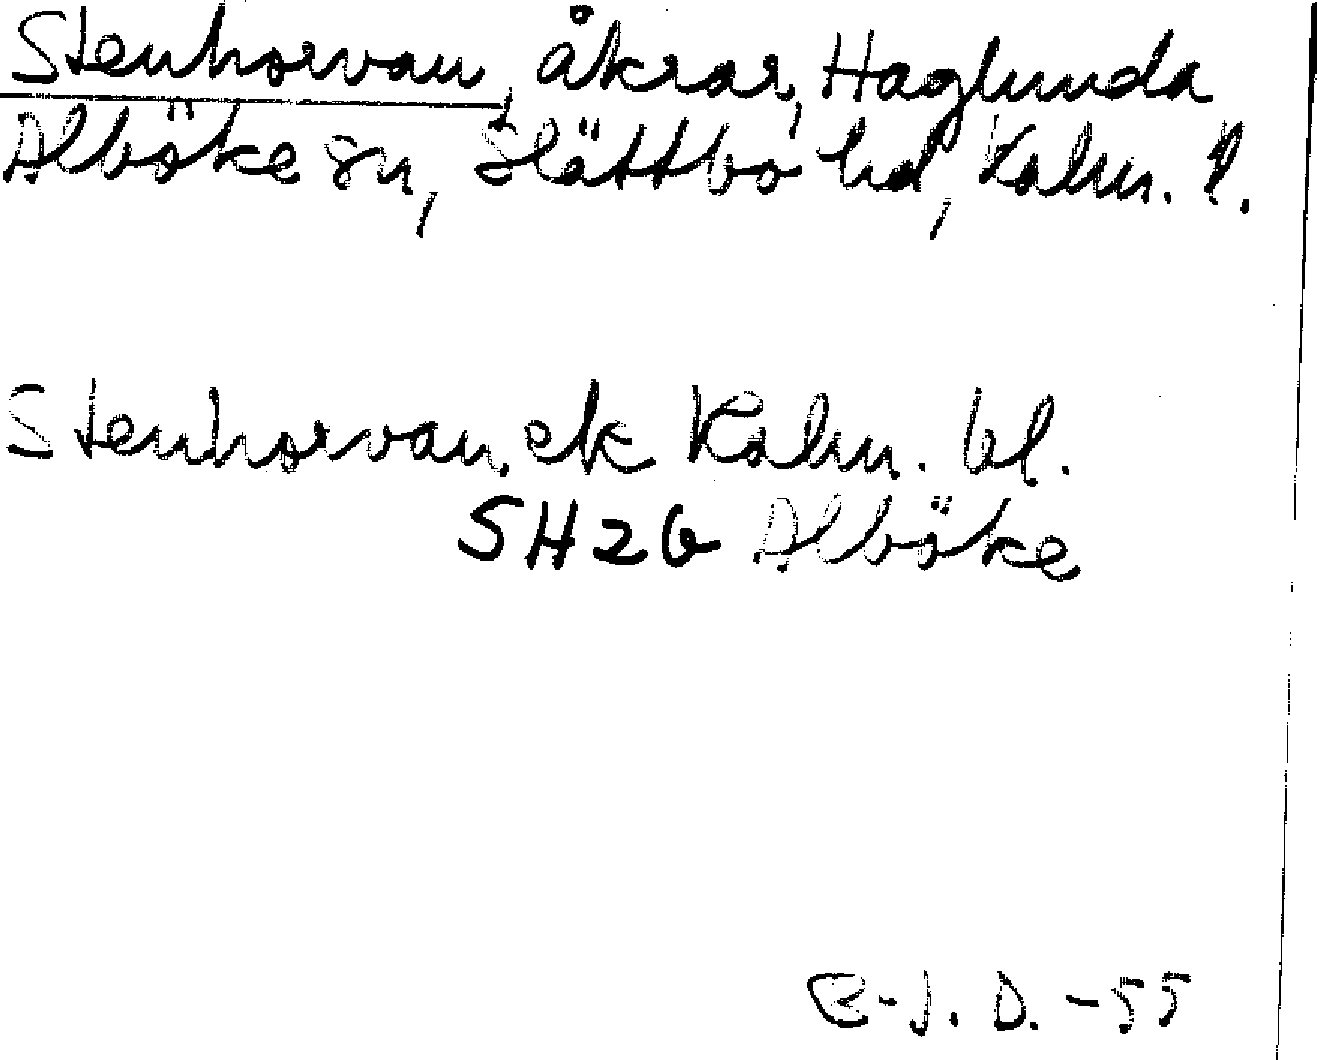 Stenhorvan, åkrar, Haglunda
Alböke sn, Slättbo hd, Kalm. l.
Stenhorvan, ek Kalm. bl.
5H2G Alböke
B-J. D. -55